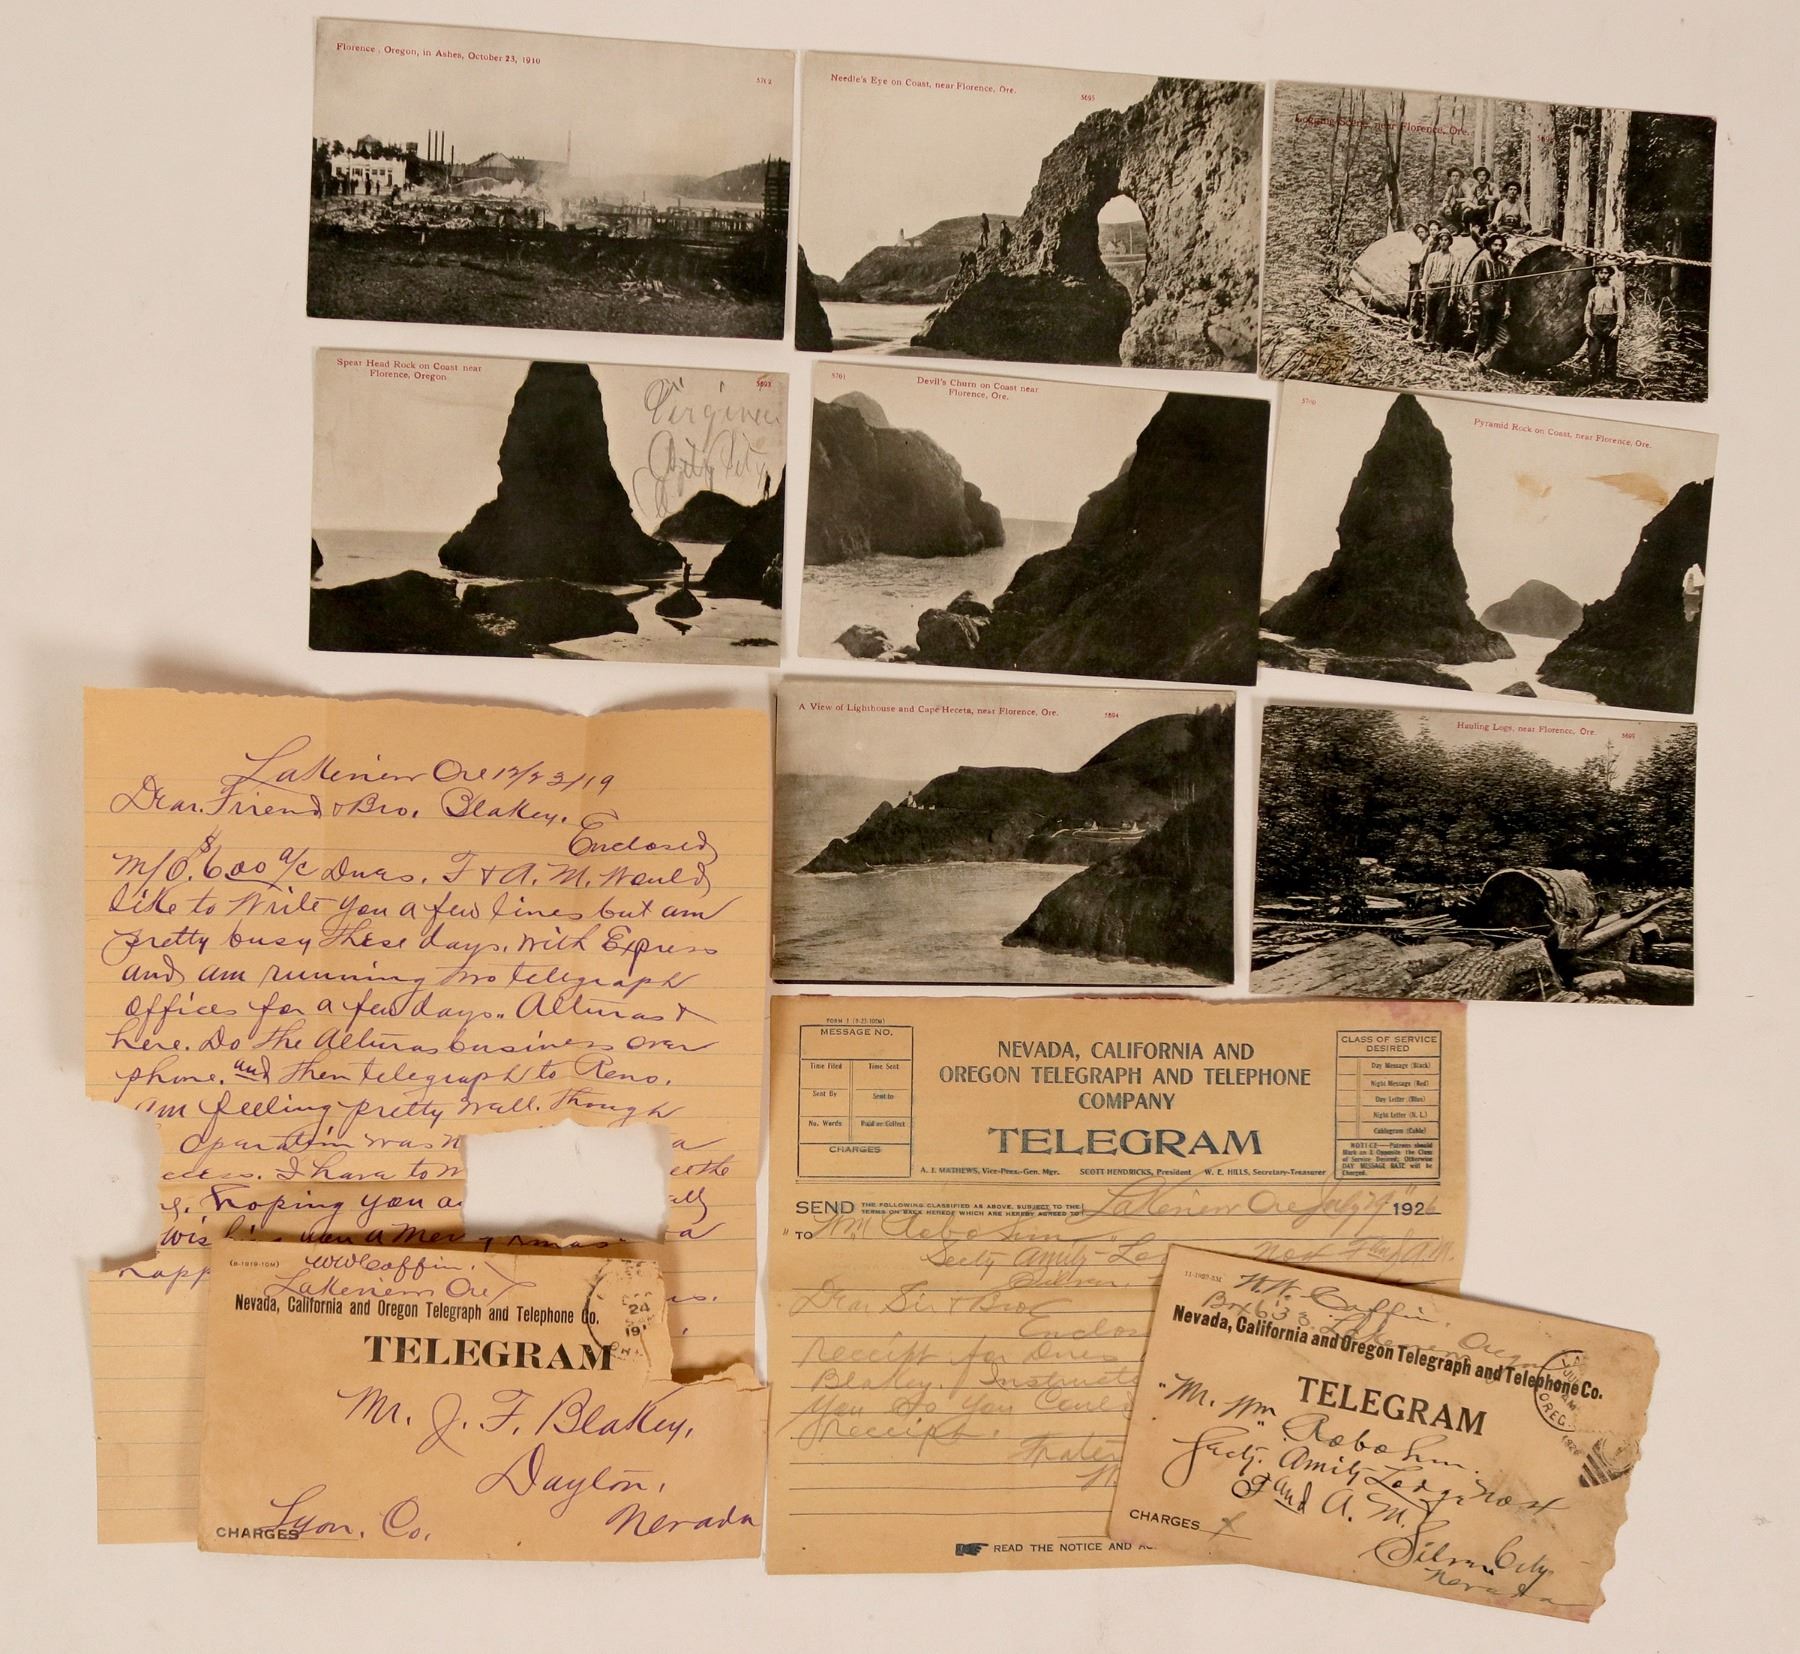 Florence, Oregon, in Ashes, October 23, 1910
5702
Needle's Eye on Coast, near Florence, Ore.
5695
Logging Scene, near Florence, Ore.
Spear Head Rock on Coast near
Florence, Oregon
5693
Virginia
City
Devil's Churn on Coast near
Florence, Ore.
5701
Pyramid Rock on Coast, near Florence, Ore.
5700
A View of Lighthouse and Cape Heceta, near Florence, Ore.
5694
Hauling Logs, near Florence, Ore.
Lakeview Ore 12/23/19
Dear Friend & Bro. Blakey.
Enclosed
M/O. $6.00 a/c Dues. F & A. M. Would
like to write you a few lines but am
pretty busy these days, with Express
and am running two telegraph
offices for a few days. Alturas &
here. Do the Alturas business over
phone. and then telegraph to Reno.
Am feeling pretty well. though
operation was
I have to
hoping you
a Mer
(8-1919-10M)
WW Coffin.
Lakeview Ore
Nevada, California and Oregon Telegraph and Telephone Co.
TELEGRAM
24
191
Mr. J. F. Blakey,
Dayton,
Lyon. Co.
Nevada
CHARGES
FORM 1 (9-23-10M)
MESSAGE NO.
Time Filed
Time Sent
Sent By
Sent to
No. Words
Paid or Collect
CHARGES
NEVADA, CALIFORNIA AND
OREGON TELEGRAPH AND TELEPHONE
COMPANY
TELEGRAM
A. J. MATHEWS, Vice-Pres.-Gen. Mgr. SCOTT HENDRICKS, President W. E. HILLS, Secretary-Treasurer
CLASS OF SERVICE
DESIRED
Day Message (Black)
Night Message (Red)
Day Letter (Blue)
Night Letter (N. L.)
Cablegram (Cable)
NOTICE—Patrons should
Mark an X Opposite the Class
of Service Desired; Otherwise
DAY MESSAGE RATE will be
Charged.
SEND THE FOLLOWING CLASSIFIED AS ABOVE, SUBJECT TO THE
TERMS ON BACK HEREOF WHICH ARE HEREBY AGREED TO
Lakeview Ore July 29" 1926
TO Wm
Secty Amity Lo
F and A. M.
Silver
Dear Sir & Bro
Enclos
Receipt for Dues
Blakey. Instructe
you so you could
Receipt.
Frater
READ THE NOTICE AND
W. W. Coffin.
Box 633. Lakeview, Oregon
Nevada, California and Oregon Telegraph and Telephone Co.
TELEGRAM
OREG.
1926
Mr. Wm
Secty. Amity Lodge
F and A. M.
Silver City
Nevada
CHARGES X